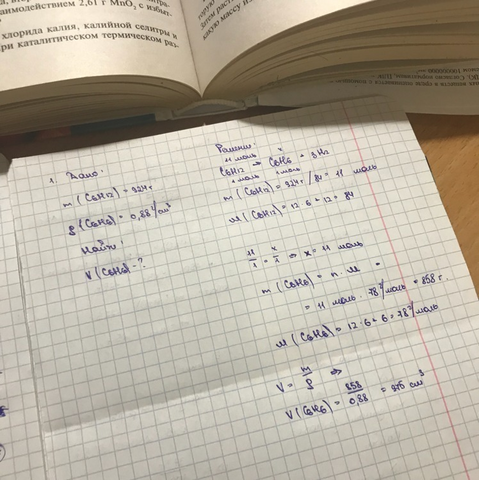 аимодействием 2,61 г MnO₂ с избыт-
хлорида калия, калийной селитры и
при каталитическом термическом раз-
какую массу
1. Дано:
m(C₆H₁₂) = 924 г
ρ(C₆H₆) = 0,88 г/см³
Найти:
V(C₆H₆) - ?
Решение:
11 моль x
C₆H₁₂ → C₆H₆ + 3H₂
1 моль 1 моль
m(C₆H₁₂) = 924 г / 84 = 11 моль
M(C₆H₁₂) = 12 · 6 + 12 = 84
11/1 = x/1 ⇒ x = 11 моль
m(C₆H₆) = n · M =
= 11 моль · 78 г/моль = 858 г.
M(C₆H₆) = 12 · 6 + 6 = 78 г/моль
V = m/ρ ⇒
V(C₆H₆) = 858/0,88 = 975 см³